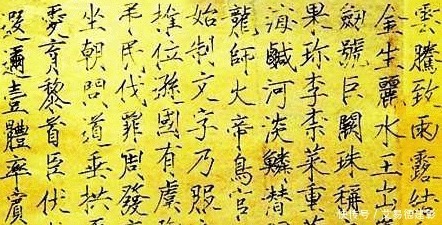 雲騰致雨露結
金生麗水玉出
劍號巨闕珠稱
果珍李柰菜重
海鹹河淡鱗潛
龍師火帝鳥官
始制文字乃服
推位遜國有虞
弔民伐罪周發
坐朝問道垂拱
愛育黎首臣伏
遐邇壹體率賓
快传号